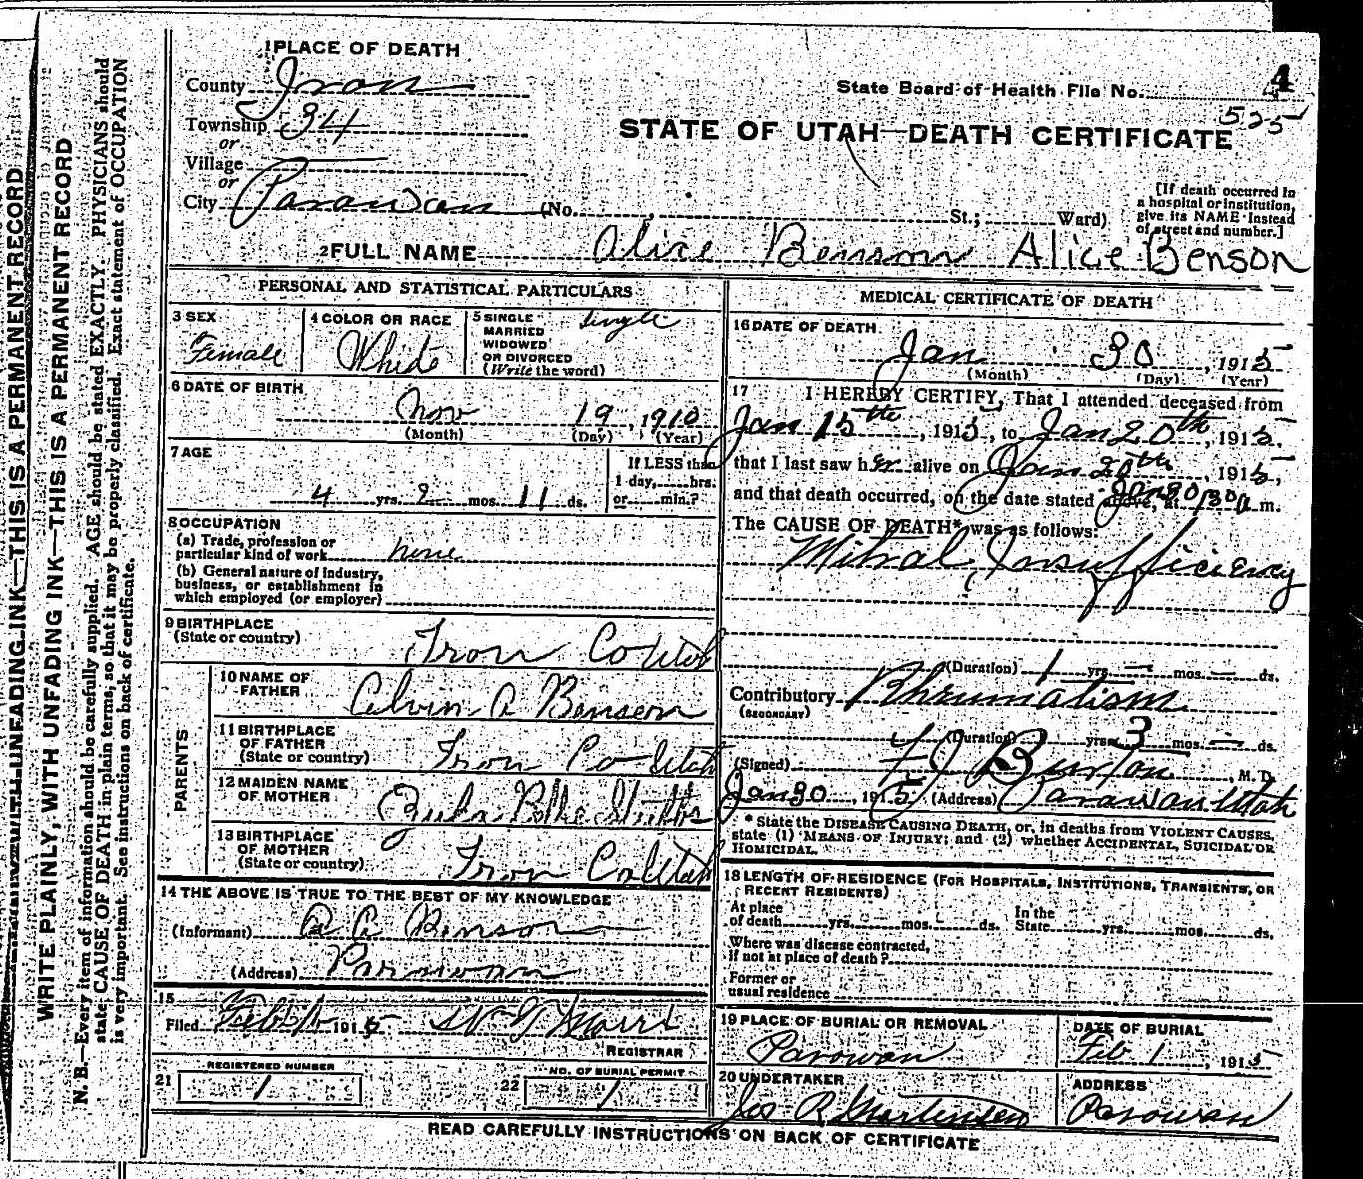 WRITE PLAINLY, WITH UNFADING INK—THIS IS A PERMANENT RECORD
N. B.—Every item of information should be carefully supplied. AGE should be stated EXACTLY. PHYSICIANS should
state CAUSE OF DEATH in plain terms, so that it may be properly classified. Exact statement of OCCUPATION
is very important. See instructions on back of certificate.
1 PLACE OF DEATH
County Iron
State Board of Health File No. 4
525
Township 34
or
Village
or
City Parowan (No. , St.; Ward)
STATE OF UTAH—DEATH CERTIFICATE
[If death occurred in
a hospital or institution,
give its NAME instead
of street and number.]
2 FULL NAME Alice Benson Alice Benson
PERSONAL AND STATISTICAL PARTICULARS
3 SEX
Female
4 COLOR OR RACE
White
5 SINGLE
MARRIED
WIDOWED
OR DIVORCED
(Write the word)
Single
6 DATE OF BIRTH
Nov 19, 1910
(Month) (Day) (Year)
7 AGE
4 yrs. 2 mos. 11 ds.
If LESS than
1 day, hrs.
or min.?
8 OCCUPATION
(a) Trade, profession or
particular kind of work none
(b) General nature of industry,
business, or establishment in
which employed (or employer)
9 BIRTHPLACE
(State or country)
Iron Co Utah
PARENTS
10 NAME OF
FATHER
Benson
11 BIRTHPLACE
OF FATHER
(State or country)
Iron Co Utah
12 MAIDEN NAME
OF MOTHER
13 BIRTHPLACE
OF MOTHER
(State or country)
Iron Co Utah
14 THE ABOVE IS TRUE TO THE BEST OF MY KNOWLEDGE
(Informant) Benson
(Address) Parowan
15
Filed Feb 1 1915
REGISTRAR
REGISTERED NUMBER
21 1
NO. OF BURIAL PERMIT
22 1
MEDICAL CERTIFICATE OF DEATH
16 DATE OF DEATH
Jan 30, 1915
(Month) (Day) (Year)
17 I HEREBY CERTIFY, That I attended deceased from
Jan 15th, 1915, to Jan 20th, 1915,
that I last saw her alive on Jan 20th, 1915,
and that death occurred, on the date stated above, at m.
The CAUSE OF DEATH* was as follows:
Mitral Insufficiency
(Duration) 1 yrs. — mos. — ds.
Contributory Rheumatism
(SECONDARY)
(Duration) yrs. 3 mos. — ds.
(Signed) Burton, M. D.
Jan 30, 1915 (Address) Parowan Utah
* State the DISEASE CAUSING DEATH, or, in deaths from VIOLENT CAUSES,
state (1) MEANS OF INJURY; and (2) whether ACCIDENTAL, SUICIDAL OR
HOMICIDAL.
18 LENGTH OF RESIDENCE (FOR HOSPITALS, INSTITUTIONS, TRANSIENTS, OR
RECENT RESIDENTS)
At place
of death yrs. mos. ds.
In the
State yrs. mos. ds.
Where was disease contracted,
if not at place of death?
Former or
usual residence
19 PLACE OF BURIAL OR REMOVAL
Parowan
DATE OF BURIAL
Feb 1, 1915
20 UNDERTAKER
ADDRESS
Parowan
READ CAREFULLY INSTRUCTIONS ON BACK OF CERTIFICATE